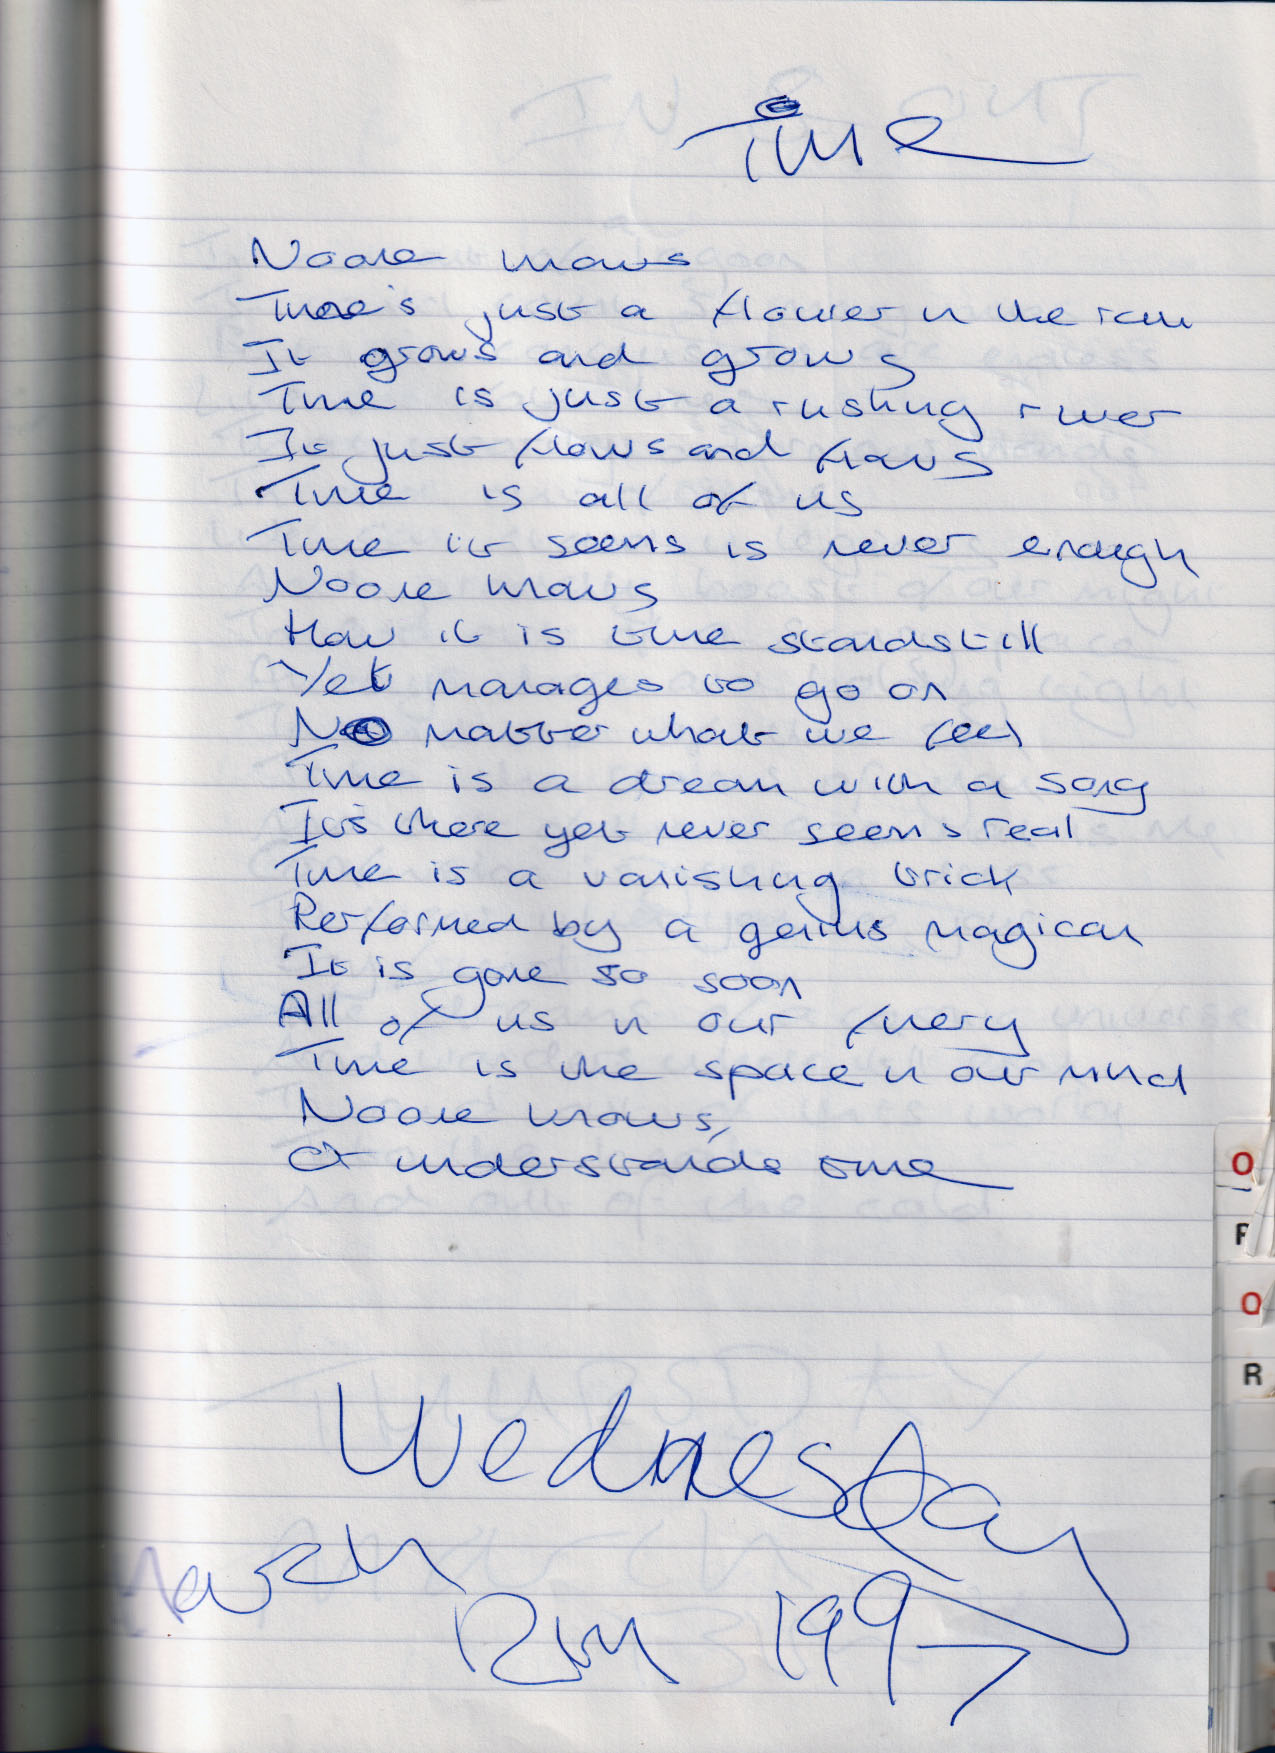 Time
Noone knows
Time's just a flower in the rain
It grows and grows
Time is just a rushing river
It just flows and flows
Time is all of us
Time it seems is never enough
Noone knows
How it is time standstill
Yet manages to go on
No matter what we feel
Time is a dream with a song
It's there yet never seems real
Time is a vanishing trick
Performed by a genius magican
It is gone so soon
All of us in our finery
Time is the space in our mind
Noone knows,
Or understands time
Wednesday
March
12th 1997
O
P
Q
R